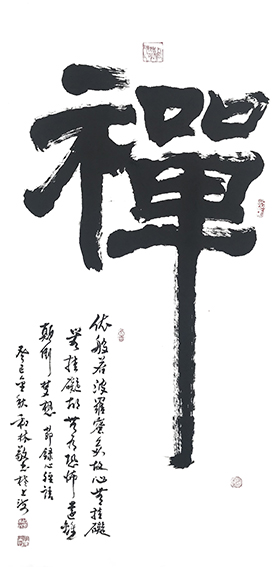 禪
依般若波羅蜜多故心無挂礙
無挂礙故無有恐怖遠離
顛倒夢想 節錄心經語
癸巳金秋雨林敬書於上海